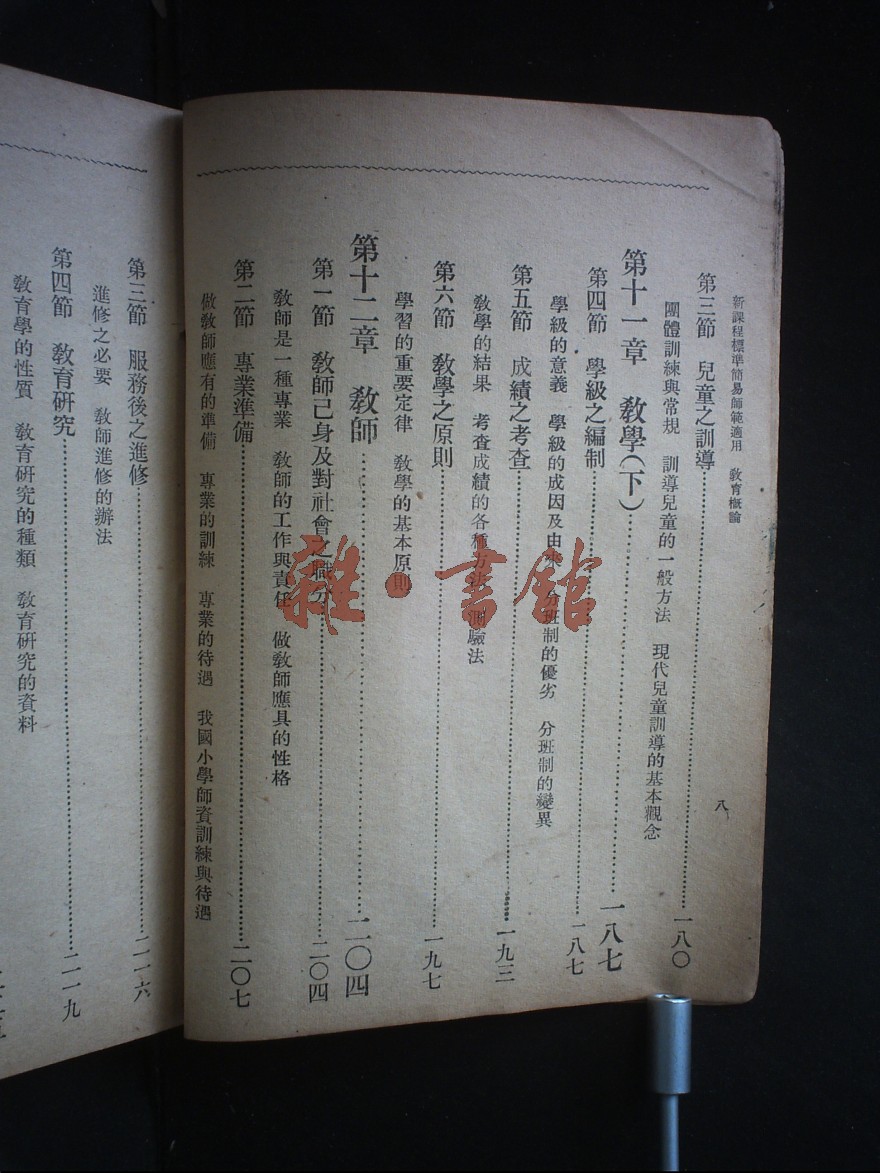 新課程標準簡易師範適用　教育概論
八
第三節　兒童之訓導……一八〇
團體訓練與常規　訓導兒童的一般方法　現代兒童訓導的基本觀念
第十一章　教學（下）……一八七
第四節　學級之編制……一八七
學級的意義　學級的成因及由來　分班制的優劣　分班制的變異
第五節　成績之考查……一九三
教學的結果　考查成績的各種方法　測驗法
第六節　教學之原則……一九七
學習的重要定律　教學的基本原則
第十二章　教師……二〇四
第一節　教師己身及對社會之職分……二〇四
教師是一種專業　教師的工作與責任　做教師應具的性格
第二節　專業準備……二〇七
做教師應有的準備　專業的訓練　專業的待遇　我國小學師資訓練與待遇
第三節　服務後之進修……二一六
進修之必要　教師進修的辦法
第四節　教育研究……二一九
教育學的性質　教育研究的種類　教育研究的資料
雜·書館